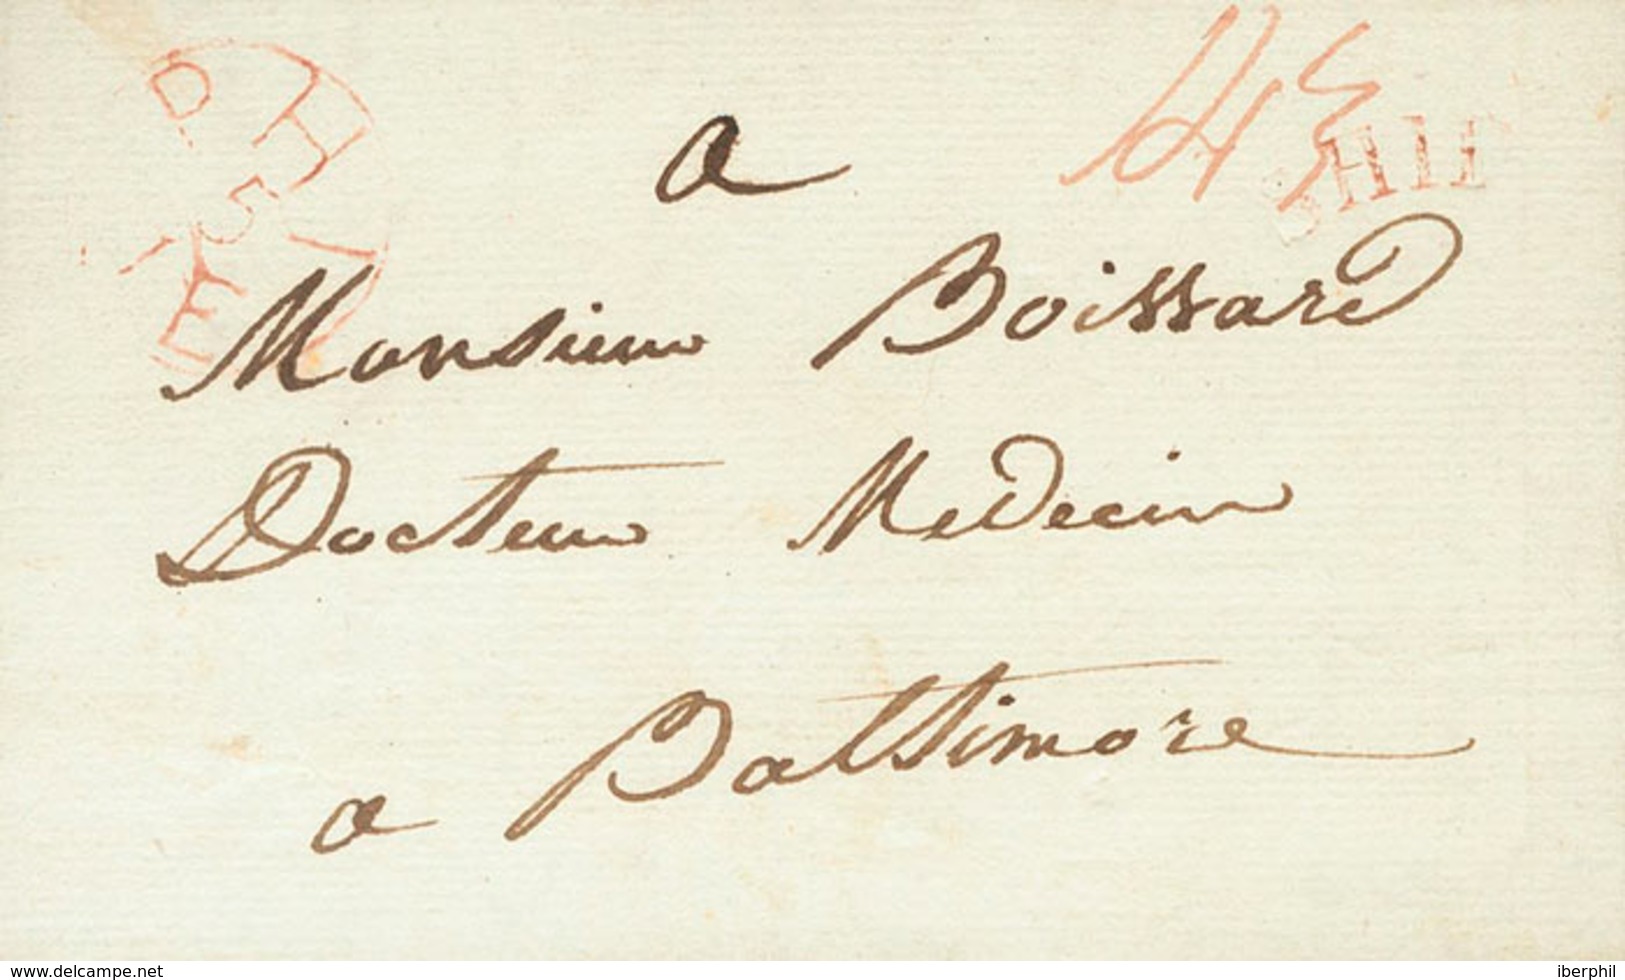 PH
5
SHIP
a
Monsieur Boissard
Docteur Medecin
a Baltimore
www.delcampe.net
iberphil